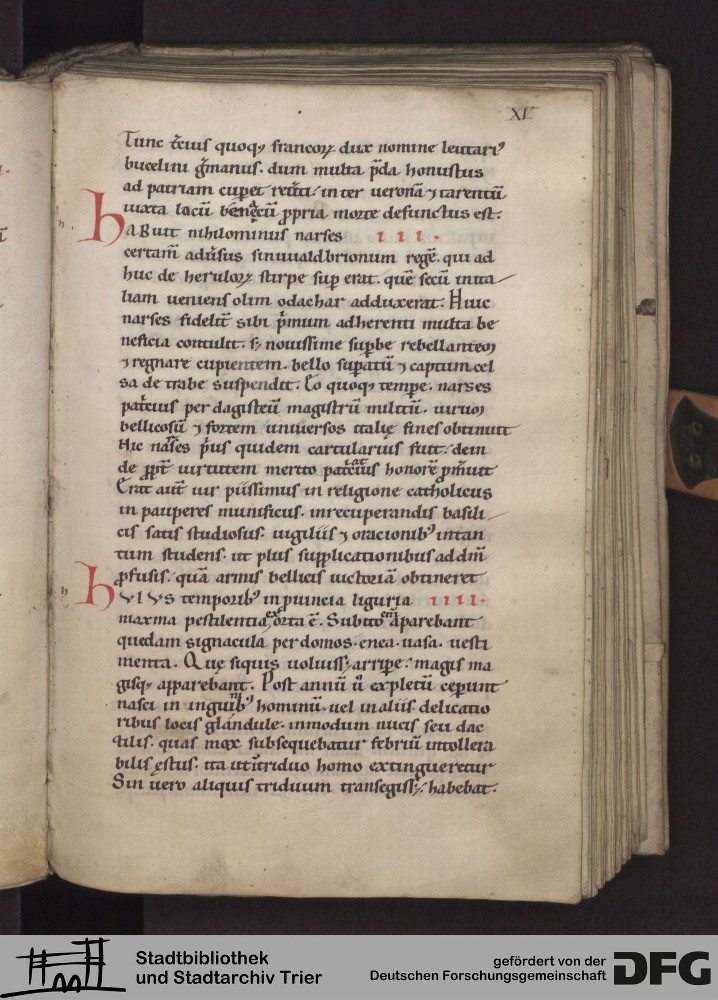 XL
Tunc t̄cius quoq; francoꝝ dux nomine leutariꝰ
bucelini g̃manus. dum multa p̄da honustus
ad patriam cuꝑet reuti inter ueronā ⁊ tarentū
iuxta lacū benacū ꝓpria morte defunctus est.
haBuit nihilominus narses III.
certam̄ adūsus sinuualdbrionum regē. qui ad
huc de heruloꝝ stirpe suꝑ erat. quē secū inita
liam ueniens olim odachar adduxerat. Huic
narses fidelit̄ sibi p̄mum adherenti multa be
neficia contulit. s; nouissime suꝑbe rebellantem
⁊ regnare cupientem. bello suꝑatū ⁊ captum cel
sa de trabe suspendit. Eo quoq; temꝑe. narses
pat̄cius per dagisteū magistrū militū. uirum
bellicosū ⁊ fortem uniuersos italię fines obtinuit
Hic narses p̄us quidem cartularius fuit. dein
de ꝓpt̄ uirtutem merito pat̄cius honorē ꝓmuit
Erat aut̄ uir piissimus in religione catholicus
in pauperes munificus. inrecuperandis basili
cis satis studiosus. uigiliis ⁊ oracionibꝰ intan
tum studens. ut plus supplicationibus ad dm̄
ꝓfusis. quā armis bellicis uictoriā obtineret
hVIVS temporibꝰ in ꝓuincia liguria IIII.
maxma pestilentia exorta ē. Subito enī aparebant
quedam signacula per domos. enea. uasa. uesti
menta. Quę siquis uoluiss; arriꝑe. magis ma
gisq; apparebant. Post annū ū expletū cęperunt
nasci in inguinibꝰ hominū. uel in aliis delicatio
ribus locis glandule. inmodum nucis seu dac
tilis. quas mox subsequebatur febriū intollera
bilis ęstus. ita ut ītriduo homo extingueretur
Sin uero aliquis triduum transegiss;. habebat.
Stadtbibliothek
und Stadtarchiv Trier
gefördert von der
Deutschen Forschungsgemeinschaft
DFG